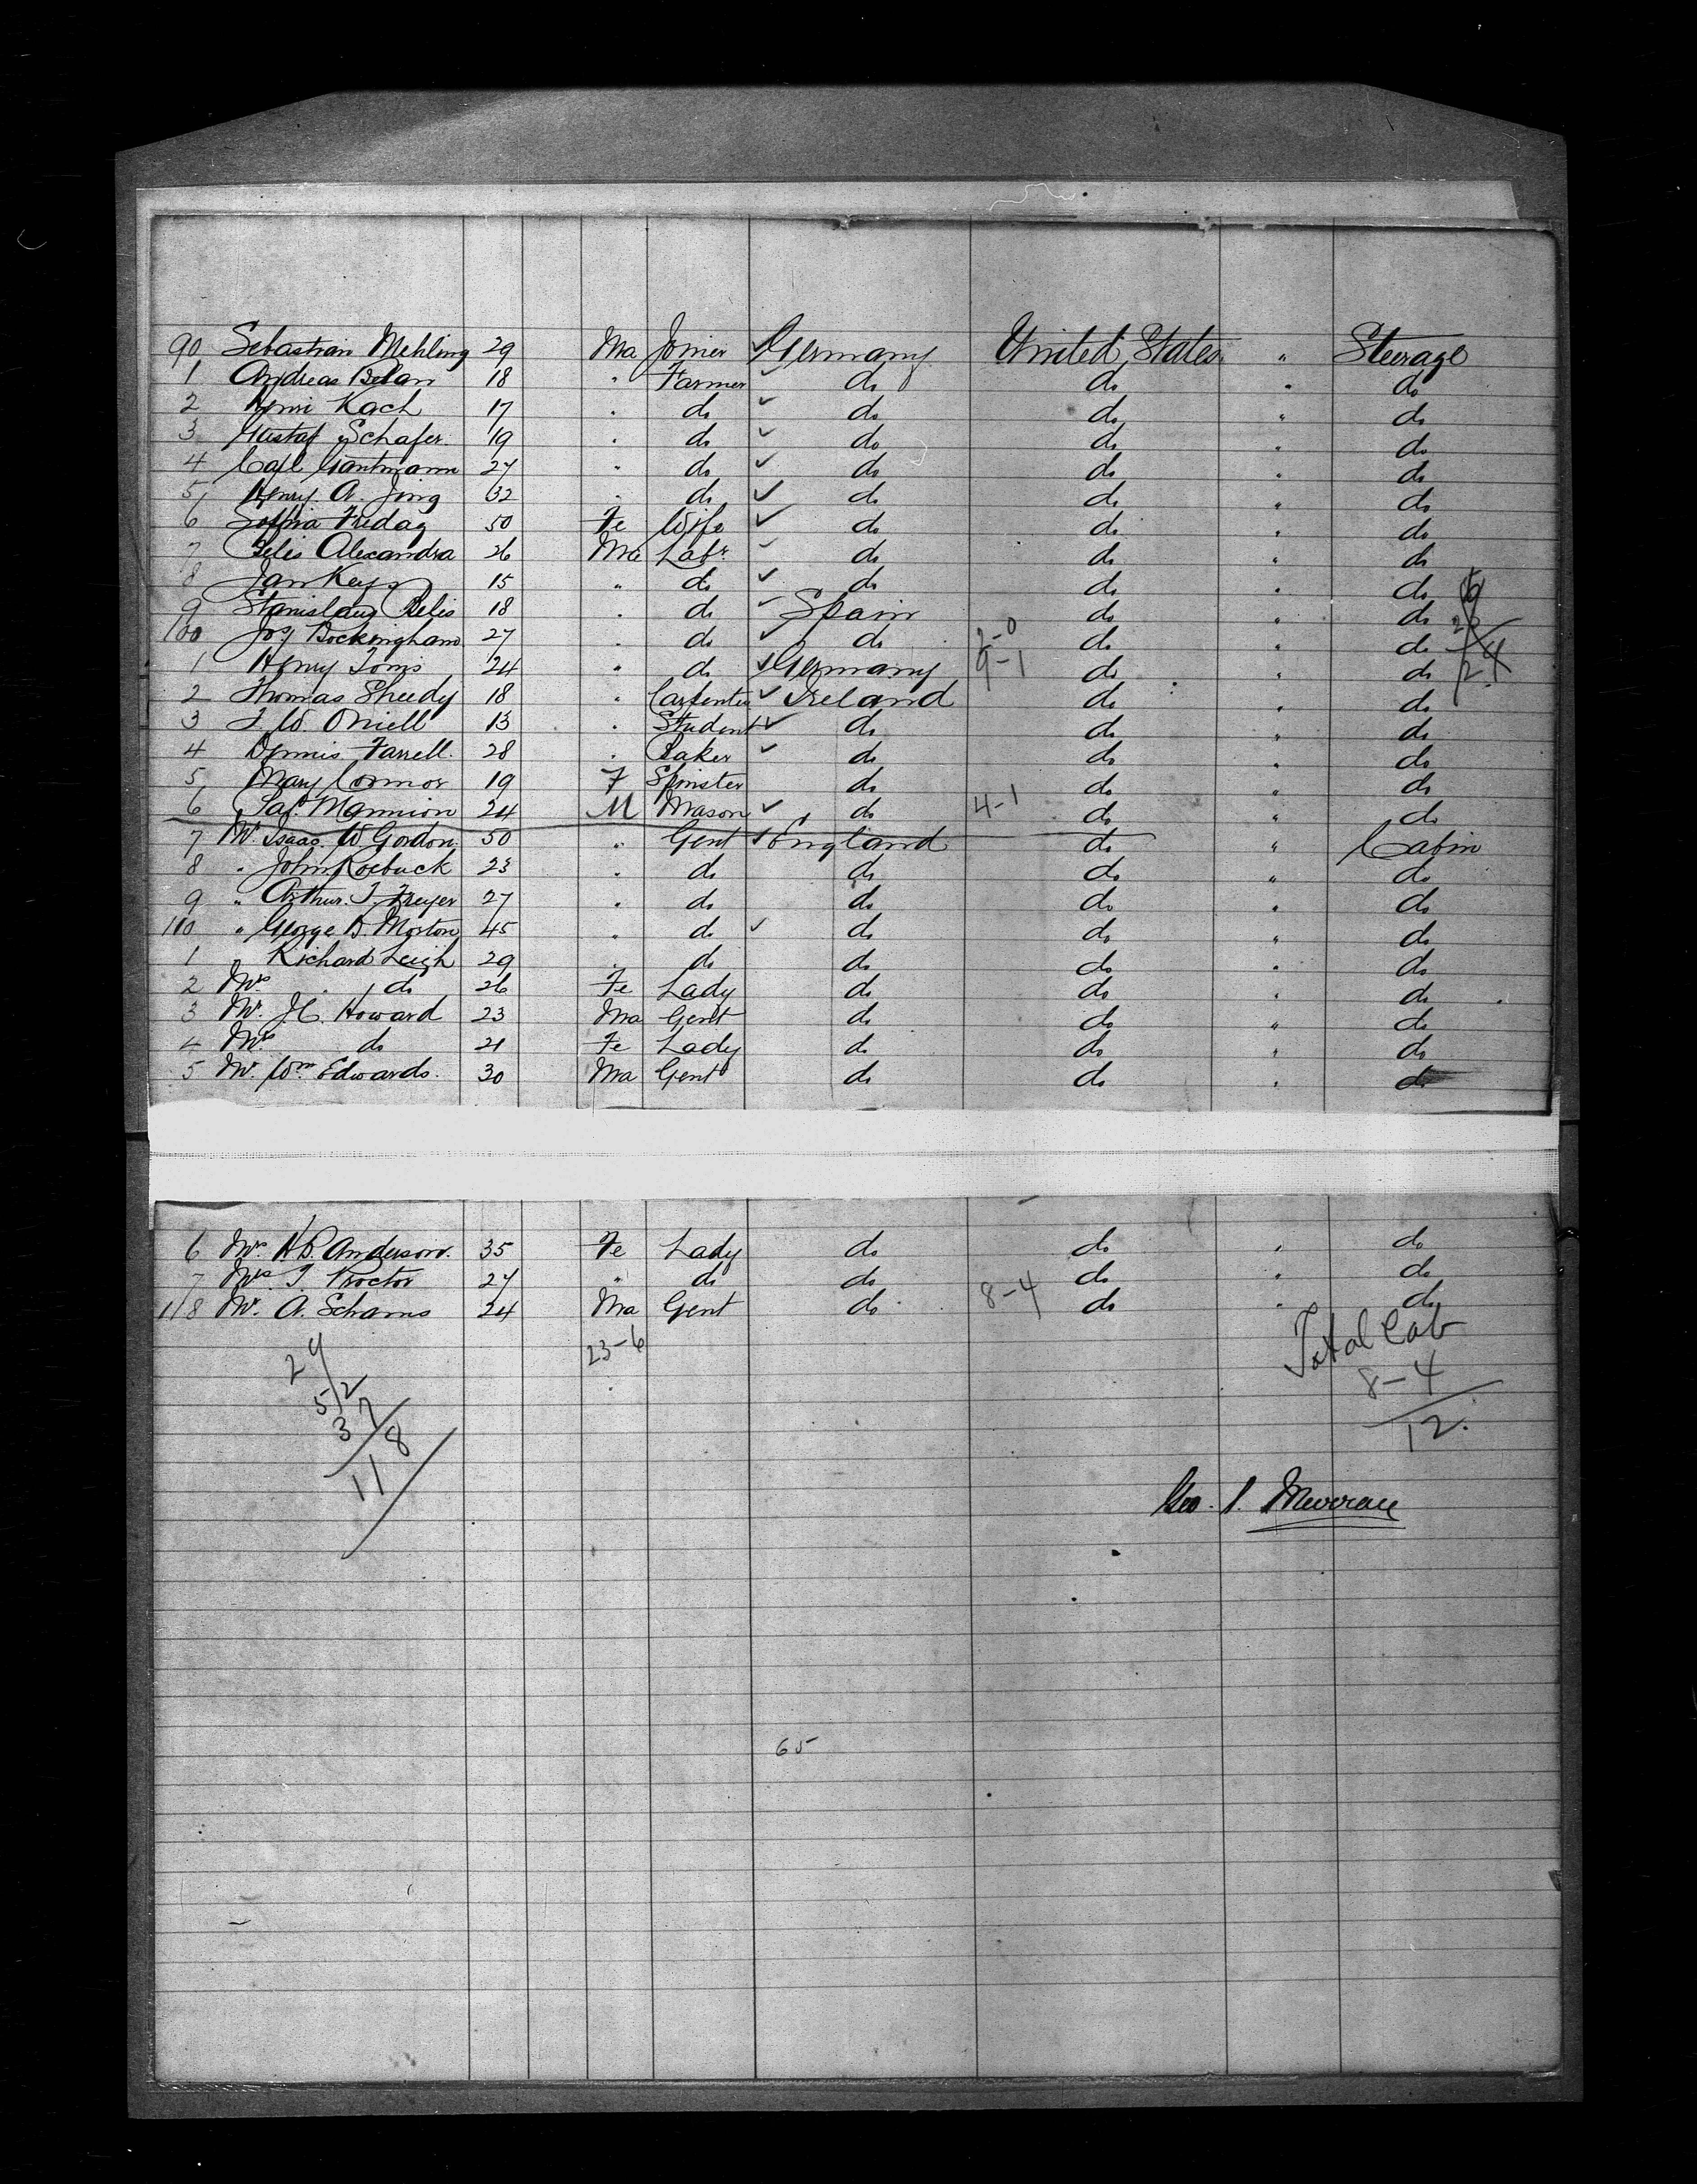 90 Sebastian Mehling 29 Ma Joiner ✓ Germany United States " Steerage
1 Andreas Belan 18 " Farmer ✓ do do " do
2 Henri Kach 17 " do ✓ do do " do
3 Gustaf Schafer. 19 " do ✓ do do " do
4 Carl Gantmann 27 " do ✓ do do " do
5 Henry. A. Jing 32 " do ✓ do do " do
6 Sophia Fredag 50 Fe Wife ✓ do do " do
7 Felis Alexandra 26 Ma Labr ✓ do do " do
8 Jan Keys 15 " do ✓ do do " do
9 Stanislaug Belis 18 " do ✓ Spain do " do
100 Josy Bockingham 27 " do ✓ do 2-0 do " do
1 Henry Toms 24 " do ✓ Germany 9-1 do " do 24
2 Thomas Sheedy 18 " Carpenter ✓ Ireland do " do
3 J. W. Oniell 13 " Student ✓ do do " do
4 Dennis Farrell. 28 " Baker ✓ do do " do
5 Mary Connor 19 F Spinster do do " do
6 Patk Mannion 24 M Mason ✓ do 4-1 do " do
7 Mr. Isaac. W Gordon. 50 " Gent ✓ England do " Cabin
8 " John Roebuck 23 " do do do " do
9 " Arthur. T. Freyer 27 " do do do " do
110 " George D. Morton 45 " do ✓ do do " do
1 Richard Leigh 29 " do do do " do
2 Mrs " do 26 Fe Lady do do " do
3 Mr. H. Howard 23 Ma Gent do do " do
4 Mrs do 21 Fe Lady do do " do
5 Mr. Wm Edwards. 30 Ma Gent do do " do
6 Mrs H B. Anderson. 35 Fe Lady do do " do
7 Mrs T. Proctor 27 " do do do " do
118 Mr. A. Schams 24 Ma Gent do 8-4 do " do
23-6
Total Cab
8-4
12.
29
52
37
118
Geo. S.
65